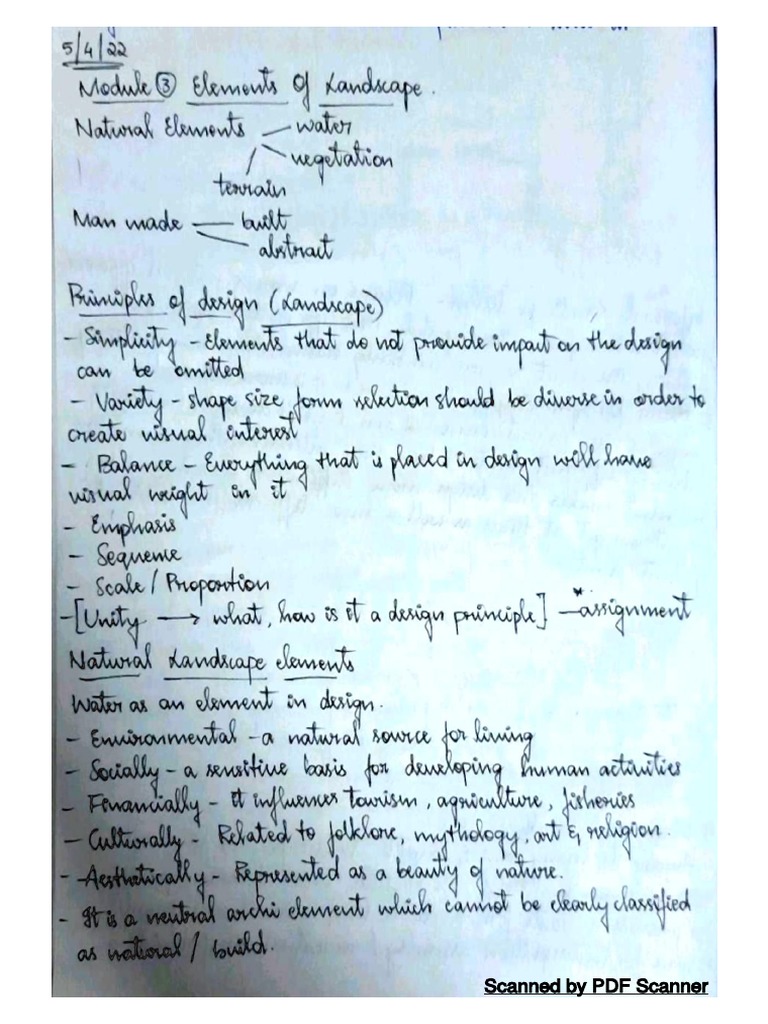 5/4/22
Module ③ Elements of Landscape.
Natural Elements — water
vegetation
terrain
Man made — built
abstract
Principles of design (Landscape)
- Simplicity - Elements that do not provide impact on the design
can be omitted
- Variety - shape size form selection should be diverse in order to
create visual interest
- Balance - Everything that is placed in design will have
visual weight in it
- Emphasis
- Sequence
- Scale / Proportion
- [Unity → what, how is it a design principle] — *assignment
Natural Landscape elements
Water as an element in design.
- Environmental - a natural source for living
- Socially - a sensitive basis for developing human activities
- Financially - it influences tourism, agriculture, fisheries
- Culturally - Related to folklore, mythology, art & religion.
- Aesthetically - Represented as a beauty of nature.
- It is a neutral archi element which cannot be clearly classified
as natural / build.
Scanned by PDF Scanner